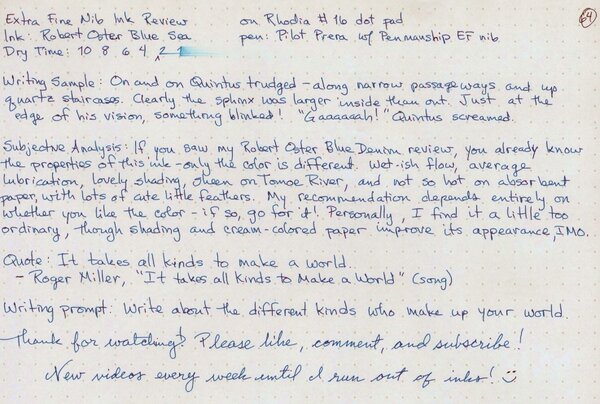 Extra Fine Nib Ink Review on Rhodia #16 dot pad 64
Ink: Robert Oster Blue Sea pen: Pilot Prera w/ Penmanship EF nib
Dry Time: 10 8 6 4 2 1
Writing Sample: On and on Quintus trudged - along narrow passageways and up
quartz staircases. Clearly the sphinx was larger inside than out. Just at the
edge of his vision, something blinked! "Gaaaaaah!" Quintus screamed.
Subjective Analysis: If you saw my Robert Oster Blue Denim review, you already know
the properties of this ink - only the color is different. Wet-ish flow, average
lubrication, lovely shading, sheen on Tomoe River, and not so hot on absorbent
paper, with lots of cute little feathers. My recommendation depends entirely on
whether you like the color - if so, go for it! Personally, I find it a little too
ordinary, though shading and cream-colored paper improve its appearance, IMO.
Quote: It takes all kinds to make a world.
- Roger Miller, "It takes all Kinds to Make a World" (song)
Writing prompt: Write about the different kinds who make up your world.
Thanks for watching! Please like, comment, and subscribe!
New videos every week until I run out of inks!